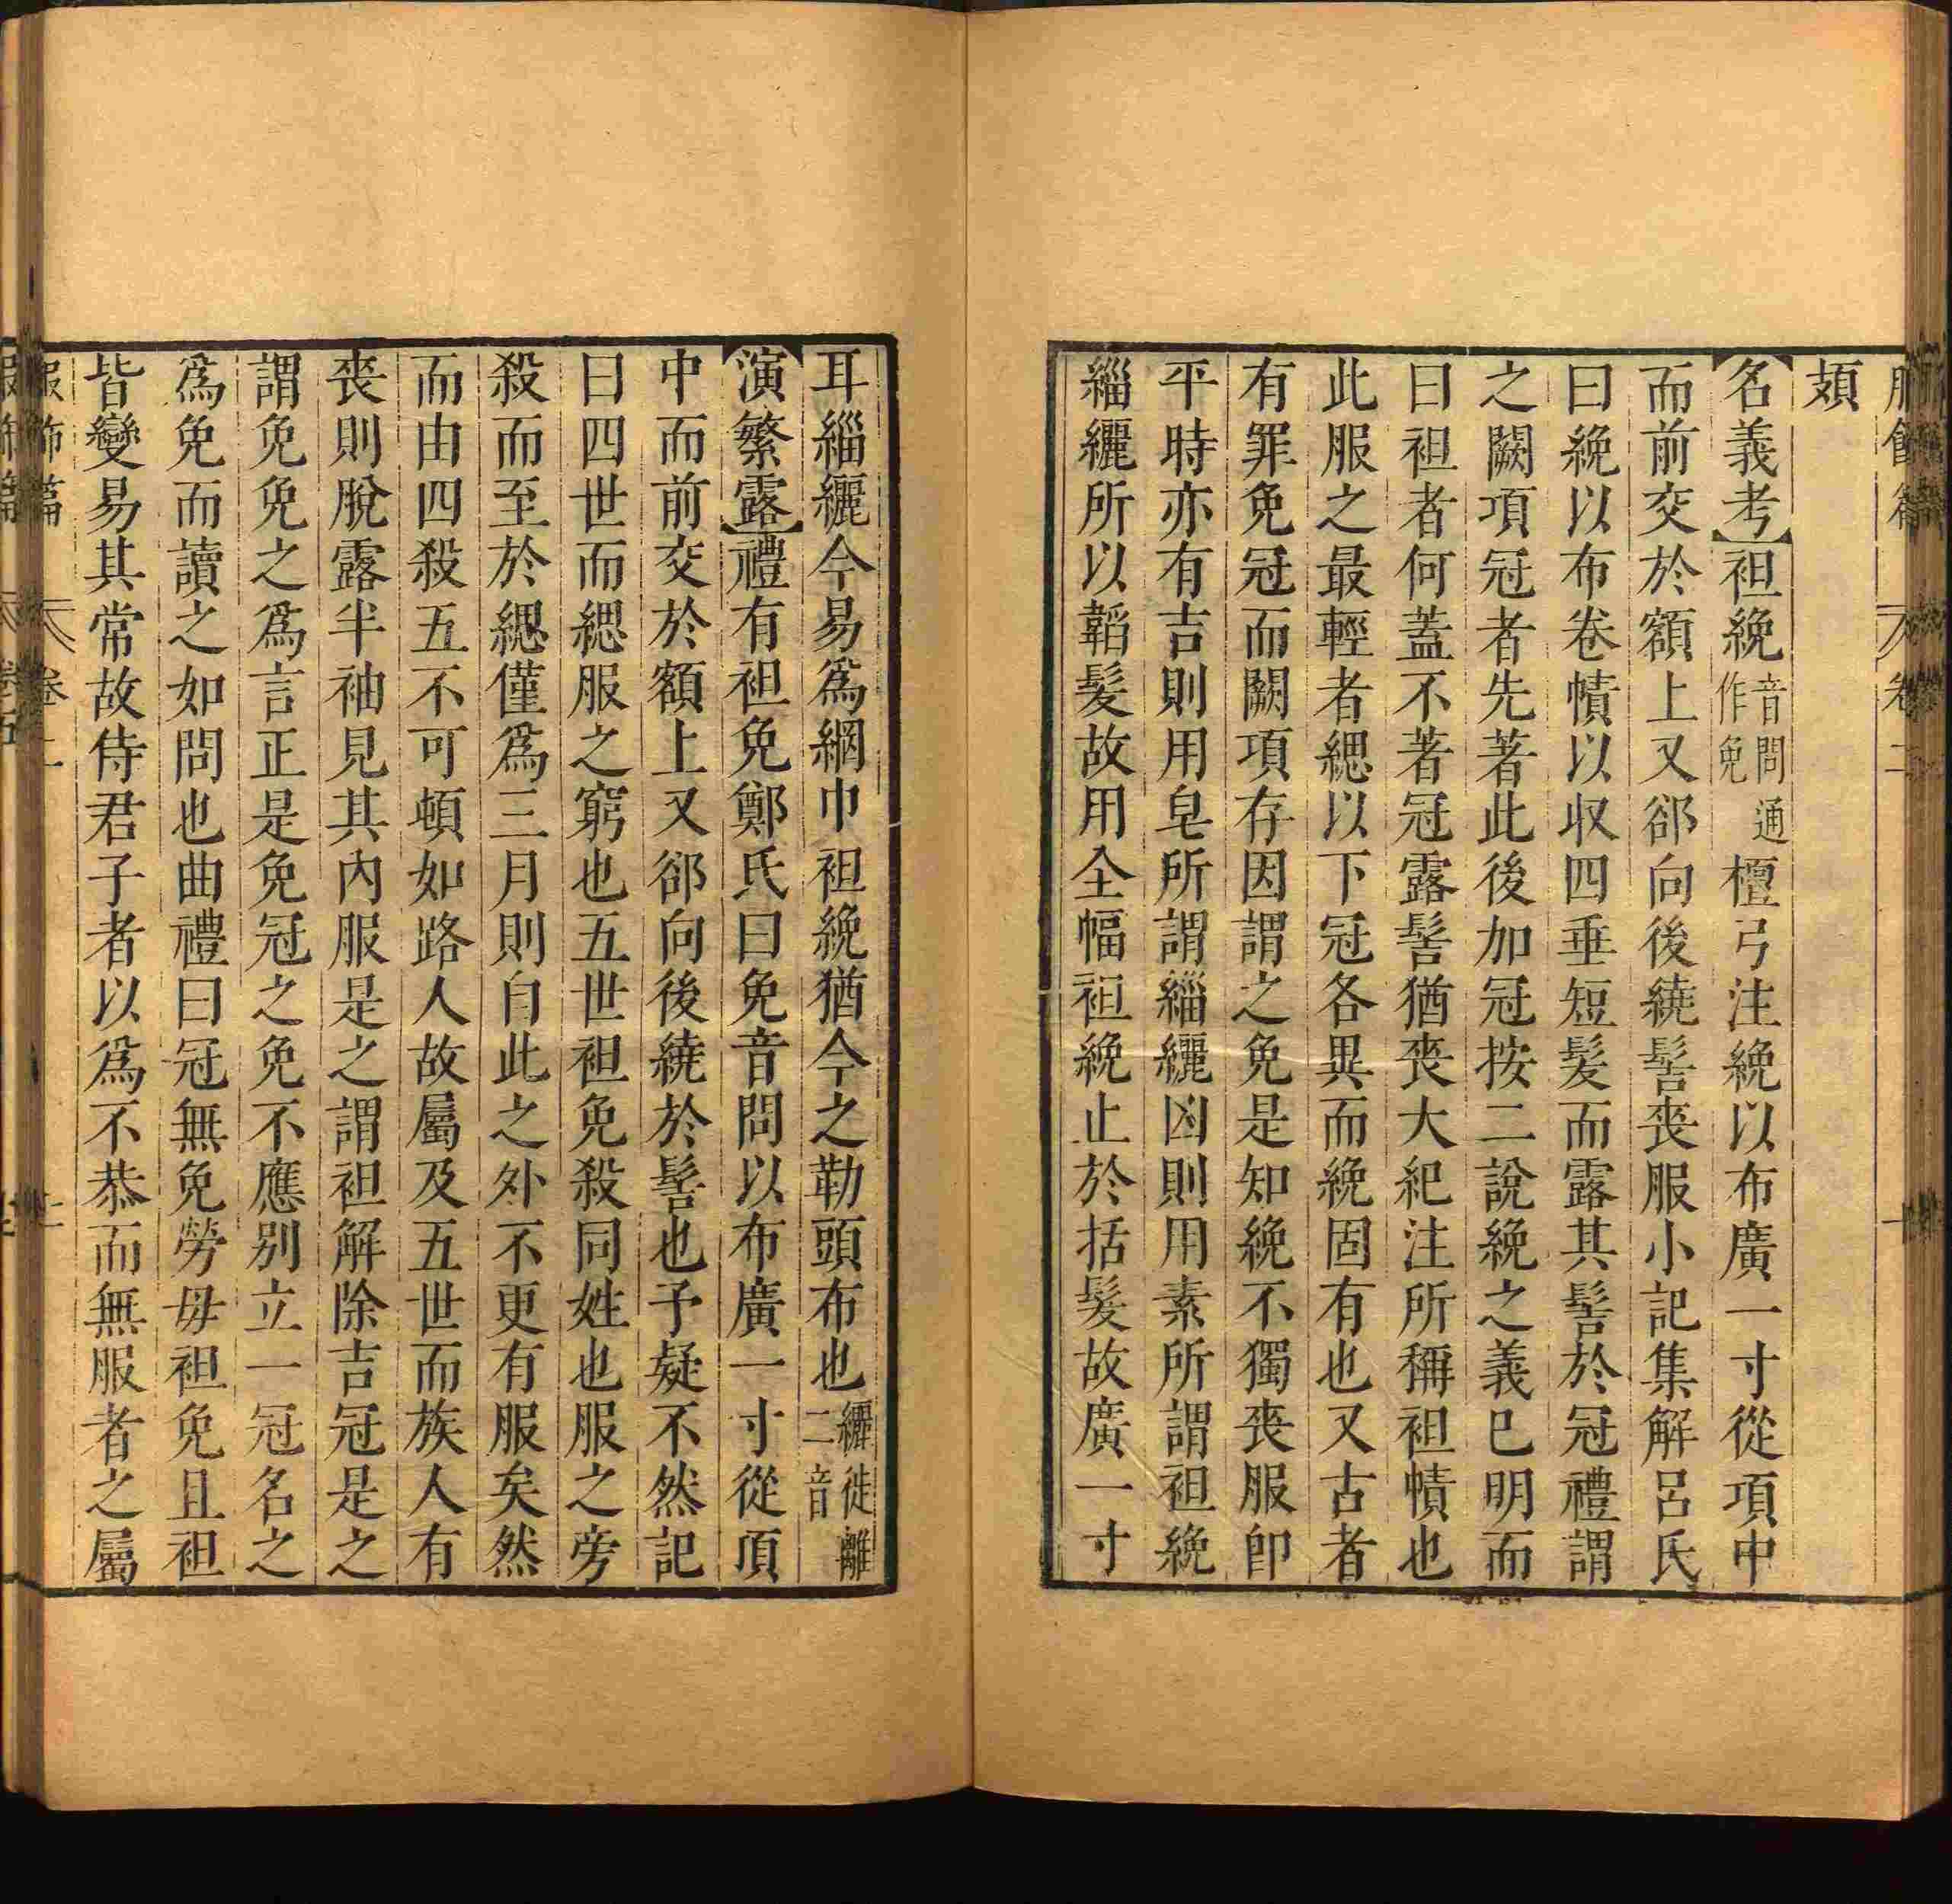 頍
【名義考】袒絻音問通作免檀弓注絻以布廣一寸從項中
而前交於額上又郤向後繞髻喪服小記集解呂氏
曰絻以布卷幘以収四垂短髮而露其髻於冠禮謂
之闕項冠者先著此後加冠按二說絻之義巳明而
曰袒者何蓋不著冠露髻猶喪大紀注所稱袒幘也
此服之最輕者緦以下冠各異而絻固有也又古者
有罪免冠而闕項存因謂之免是知絻不獨喪服卽
平時亦有吉則用皂所謂緇纚凶則用素所謂袒絻
緇纚所以韜髮故用全幅袒絻止於括髮故廣一寸
耳緇纚今易爲網巾袒絻猶今之勒頭布也纚徙離二音
【演繁露】禮有袒免鄭氏曰免音問以布廣一寸從項
中而前交於額上又郤向後繞於髻也予疑不然記
曰四世而緦服之窮也五世袒免殺同姓也服之旁
殺而至於緦僅爲三月則自此之外不更有服矣然
而由四殺五不可頓如路人故屬及五世而族人有
喪則脫露半袖見其內服是之謂袒解除吉冠是之
謂免免之爲言正是免冠之免不應別立一冠名之
爲免而讀之如問也曲禮曰冠無免勞毋袒免且袒
皆變易其常故侍君子者以爲不恭而無服者之屬